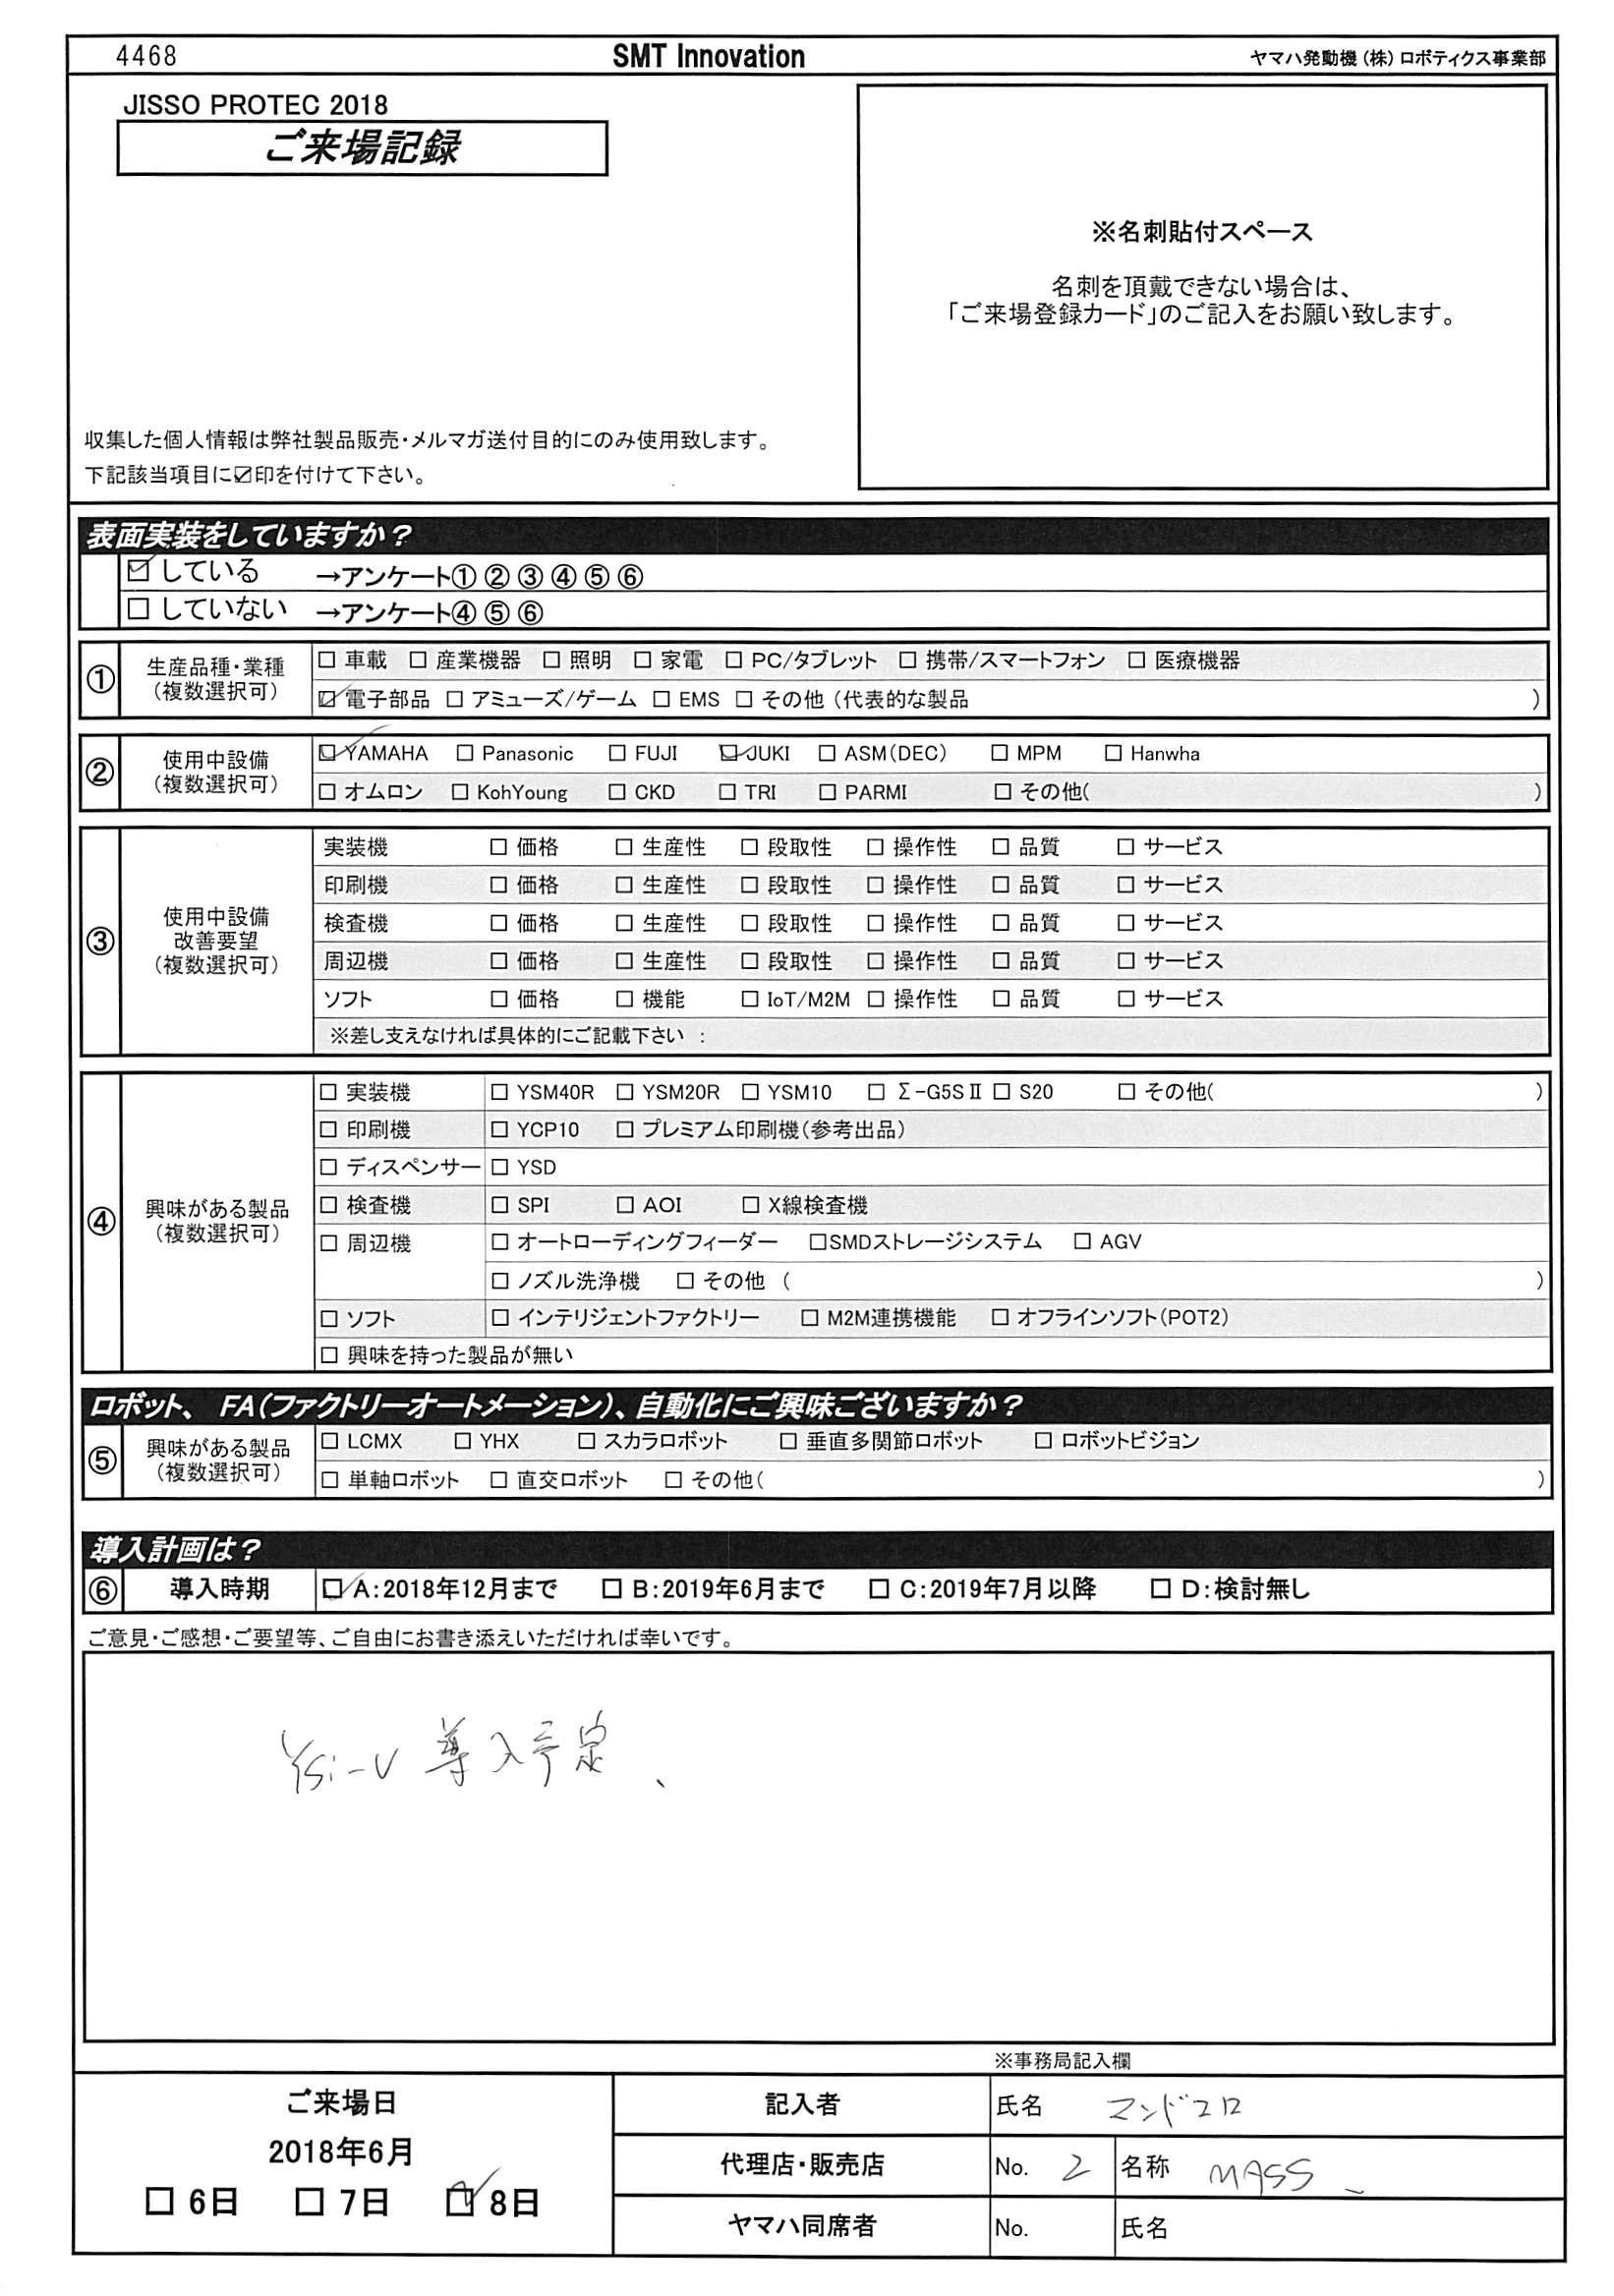 4468 SMT Innovation ヤマハ発動機（株）ロボティクス事業部
JISSO PROTEC 2018
ご来場記録
※名刺貼付スペース
名刺を頂戴できない場合は、
「ご来場登録カード」のご記入をお願い致します。
収集した個人情報は弊社製品販売・メルマガ送付目的にのみ使用致します。
下記該当項目に☑印を付けて下さい。
表面実装をしていますか？
☑ している →アンケート① ② ③ ④ ⑤ ⑥
□ していない →アンケート④ ⑤ ⑥
① 生産品種・業種（複数選択可）
□ 車載 □ 産業機器 □ 照明 □ 家電 □ PC/タブレット □ 携帯/スマートフォン □ 医療機器
☑ 電子部品 □ アミューズ/ゲーム □ EMS □ その他（代表的な製品 ）
② 使用中設備（複数選択可）
☑ YAMAHA □ Panasonic □ FUJI ☑ JUKI □ ASM(DEC) □ MPM □ Hanwha
□ オムロン □ KohYoung □ CKD □ TRI □ PARMI □ その他( )
③ 使用中設備改善要望（複数選択可）
実装機 □ 価格 □ 生産性 □ 段取性 □ 操作性 □ 品質 □ サービス
印刷機 □ 価格 □ 生産性 □ 段取性 □ 操作性 □ 品質 □ サービス
検査機 □ 価格 □ 生産性 □ 段取性 □ 操作性 □ 品質 □ サービス
周辺機 □ 価格 □ 生産性 □ 段取性 □ 操作性 □ 品質 □ サービス
ソフト □ 価格 □ 機能 □ IoT/M2M □ 操作性 □ 品質 □ サービス
※差し支えなければ具体的にご記載下さい ：
④ 興味がある製品（複数選択可）
□ 実装機 □ YSM40R □ YSM20R □ YSM10 □ Σ-G5SⅡ □ S20 □ その他( )
□ 印刷機 □ YCP10 □ プレミアム印刷機（参考出品）
□ ディスペンサー □ YSD
□ 検査機 □ SPI □ AOI □ X線検査機
□ 周辺機 □ オートローディングフィーダー □SMDストレージシステム □ AGV
□ ノズル洗浄機 □ その他 （ ）
□ ソフト □ インテリジェントファクトリー □ M2M連携機能 □ オフラインソフト（POT2）
□ 興味を持った製品が無い
ロボット、 FA（ファクトリーオートメーション）、自動化にご興味ございますか？
⑤ 興味がある製品（複数選択可）
□ LCMX □ YHX □ スカラロボット □ 垂直多関節ロボット □ ロボットビジョン
□ 単軸ロボット □ 直交ロボット □ その他( )
導入計画は？
⑥ 導入時期 ☑ A：2018年12月まで □ B：2019年6月まで □ C：2019年7月以降 □ D：検討無し
ご意見・ご感想・ご要望等、ご自由にお書き添えいただければ幸いです。
YSi-V 導入予定、
※事務局記入欄
ご来場日
2018年6月
□ 6日 □ 7日 ☑ 8日
記入者 氏名 マンドコロ
代理店・販売店 No. 2 名称 MASS
ヤマハ同席者 No. 氏名